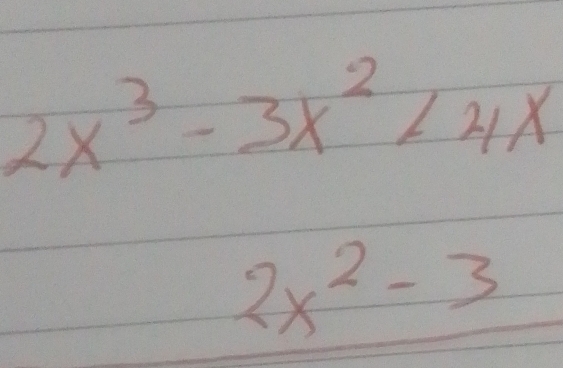 2x³ - 3x² < 4x
2x² - 3